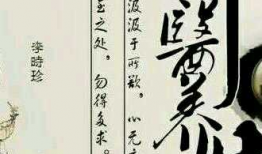 醫
汲汲于所欲。心无
至之处。勿得多求。
李時珍